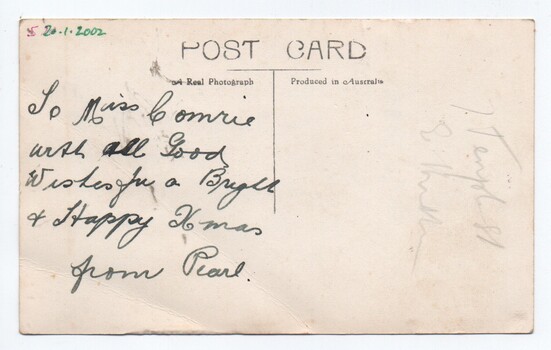 20-1-2002
POST CARD
Real Photograph
Produced in Australia
To Miss Comrie
with all Good
Wishes for a Bright
& Happy Xmas
from Pearl